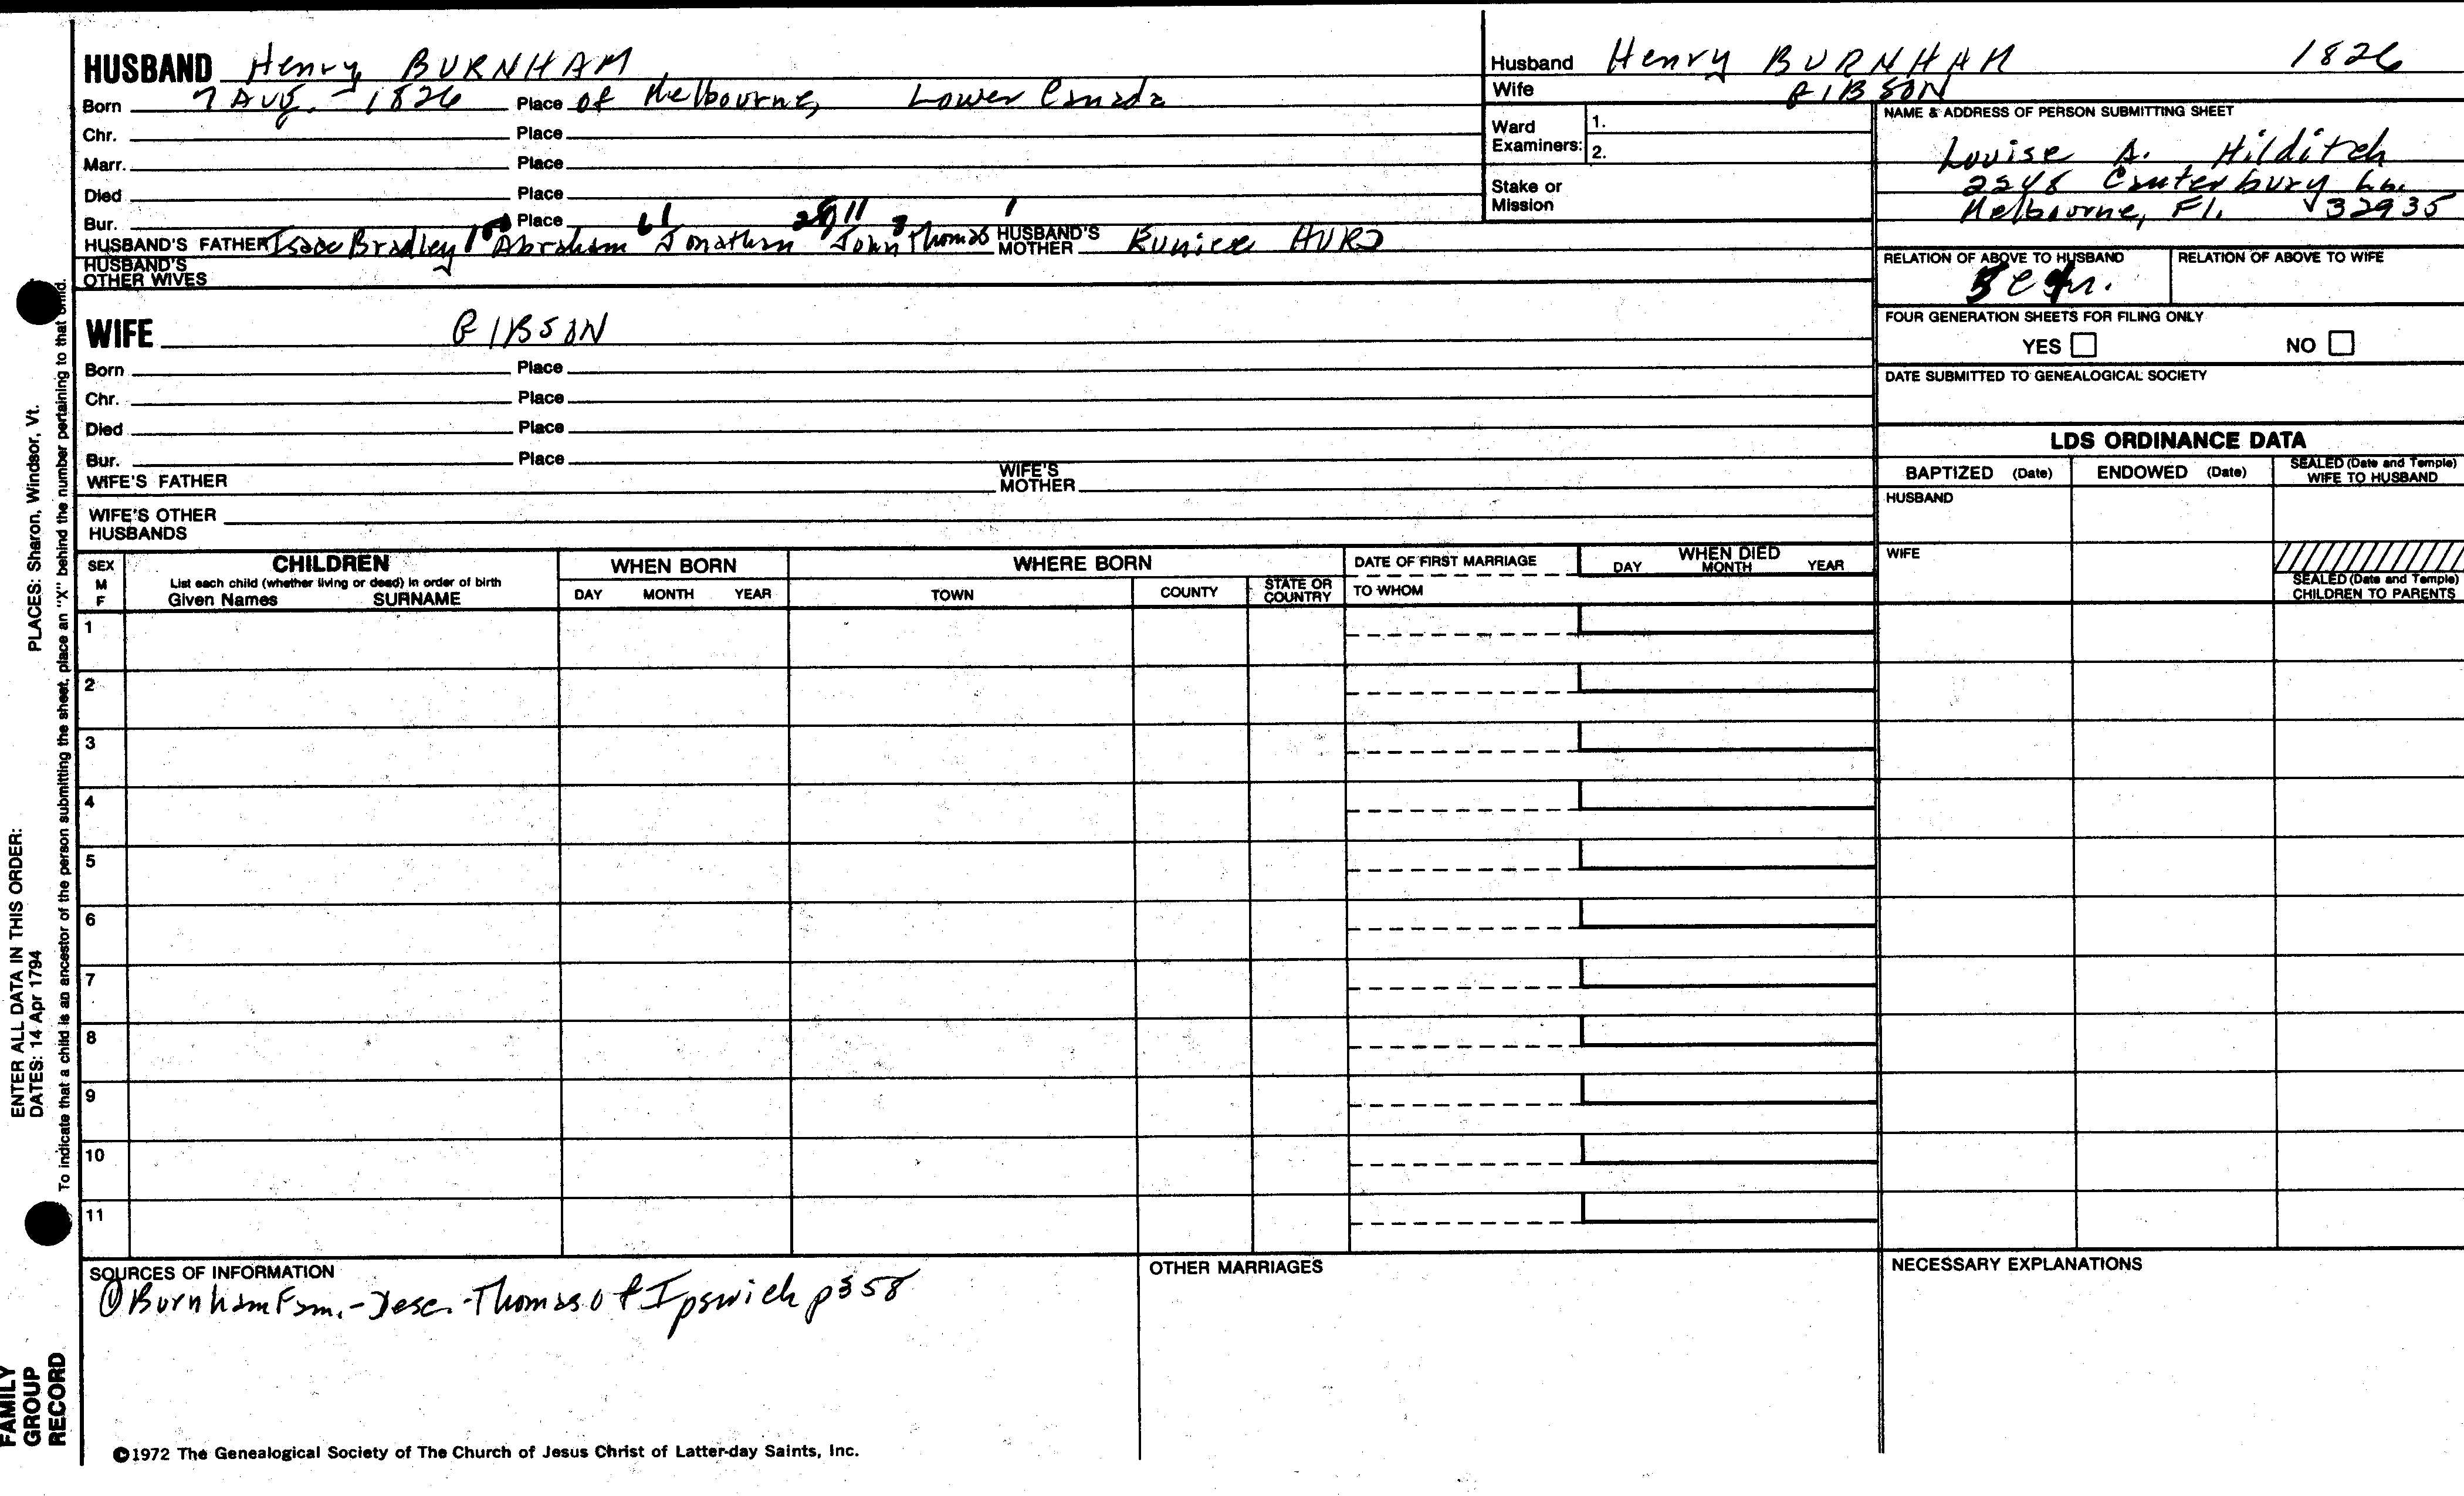 HUSBAND Henry BURNHAM
Born 7 Aug. - 1826 Place of Melbourne, Lower Canada
Chr. Place
Marr. Place
Died Place
Bur. Place
HUSBAND'S FATHER Isaac Bradley Abraham Jonathan John Thomas HUSBAND'S MOTHER Eunice HURD
HUSBAND'S
OTHER WIVES
WIFE GIBSON
Born Place
Chr. Place
Died Place
Bur. Place
WIFE'S FATHER WIFE'S MOTHER
WIFE'S OTHER
HUSBANDS
Husband Henry BURNHAM 1826
Wife GIBSON
Ward
Examiners:
1.
2.
Stake or
Mission
NAME & ADDRESS OF PERSON SUBMITTING SHEET
Louise A. Hilditch
2248 Canterbury Ln.
Melbourne, Fl. 32935
RELATION OF ABOVE TO HUSBAND RELATION OF ABOVE TO WIFE
FOUR GENERATION SHEETS FOR FILING ONLY
YES NO
DATE SUBMITTED TO GENEALOGICAL SOCIETY
LDS ORDINANCE DATA
BAPTIZED (Date) ENDOWED (Date) SEALED (Date and Temple) WIFE TO HUSBAND
HUSBAND
WIFE
SEALED (Date and Temple)
CHILDREN TO PARENTS
SEX
M
F
CHILDREN
List each child (whether living or dead) in order of birth
Given Names SURNAME
WHEN BORN
DAY MONTH YEAR
WHERE BORN
TOWN COUNTY STATE OR COUNTRY
DATE OF FIRST MARRIAGE
TO WHOM
WHEN DIED
DAY MONTH YEAR
1
2
3
4
5
6
7
8
9
10
11
SOURCES OF INFORMATION
① Burnham Fam. - Desc. - Thomas of Ipswich p358
OTHER MARRIAGES
NECESSARY EXPLANATIONS
©1972 The Genealogical Society of The Church of Jesus Christ of Latter-day Saints, Inc.
ENTER ALL DATA IN THIS ORDER:
DATES: 14 Apr 1794 PLACES: Sharon, Windsor, Vt.
To indicate that a child is an ancestor of the person submitting the sheet, place an "X" behind the number pertaining to that child.
FAMILY
GROUP
RECORD